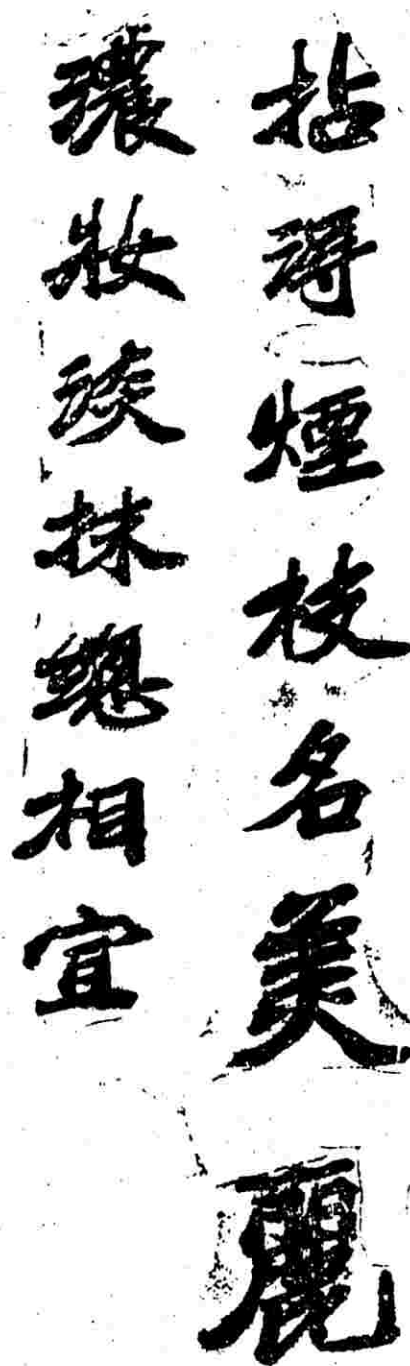 拈得煙枝名美麗
濃妝淡抹總相宜